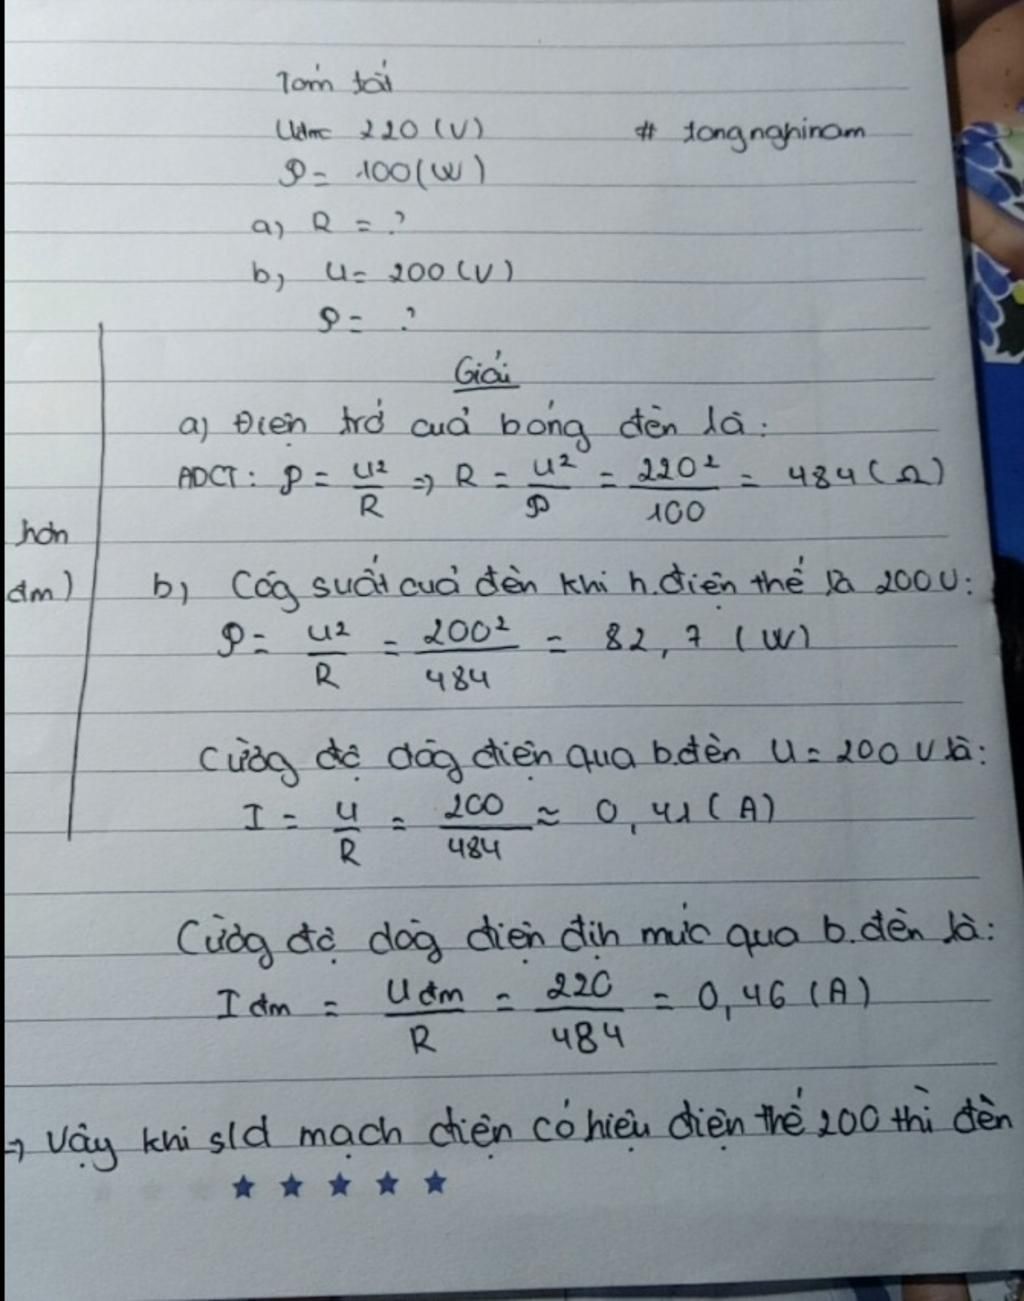 Tóm tắt
Uđm 220 (V) # tongnghinam
P = 100 (W)
a) R = ?
b) U = 200 (V)
P = ?
Giải
a) Điện trở cuả bóng đèn là :
ADCT : P = U²/R => R = U²/P = 220²/100 = 484 (Ω)
hơn
đm)
b) Côg suất cuả đèn khi h.điện thế là 200U :
P = U²/R = 200²/484 = 82,7 (W)
Cườg độ dòg điện qua b.đèn U = 200 V là :
I = U/R = 200/484 ≈ 0,41 (A)
Cườg độ dòg điện địh mức qua b.đèn là :
I đm = U đm/R = 220/484 = 0,46 (A)
=> Vậy khi s/d mạch điện có hiệu điện thế 200 thì đèn